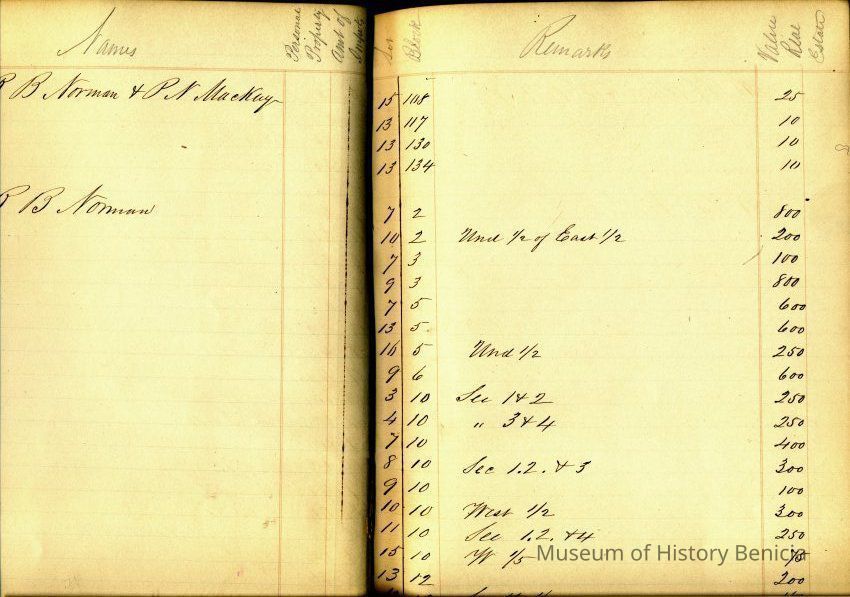 Names Personal Property Amt of Lot Block Remarks Value Real Estate
R B Norman & P N Mackay 15 108 25
13 117 10
13 130 10
13 134 10
R B Norman 7 2 800
10 2 Und 1/2 of East 1/2 200
7 3 100
9 3 800
7 5 600
13 5 600
16 5 Und 1/2 250
9 6 600
3 10 Sec 1 & 2 250
4 10 " 3 & 4 250
7 10 400
8 10 Sec 1.2. & 3 300
9 10 100
10 10 West 1/2 300
11 10 Sec 1.2. & 4 250
15 10 W 1/5
13 12 200
Museum of History Benicia